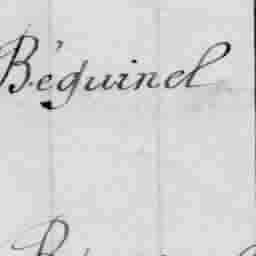 Béguinel